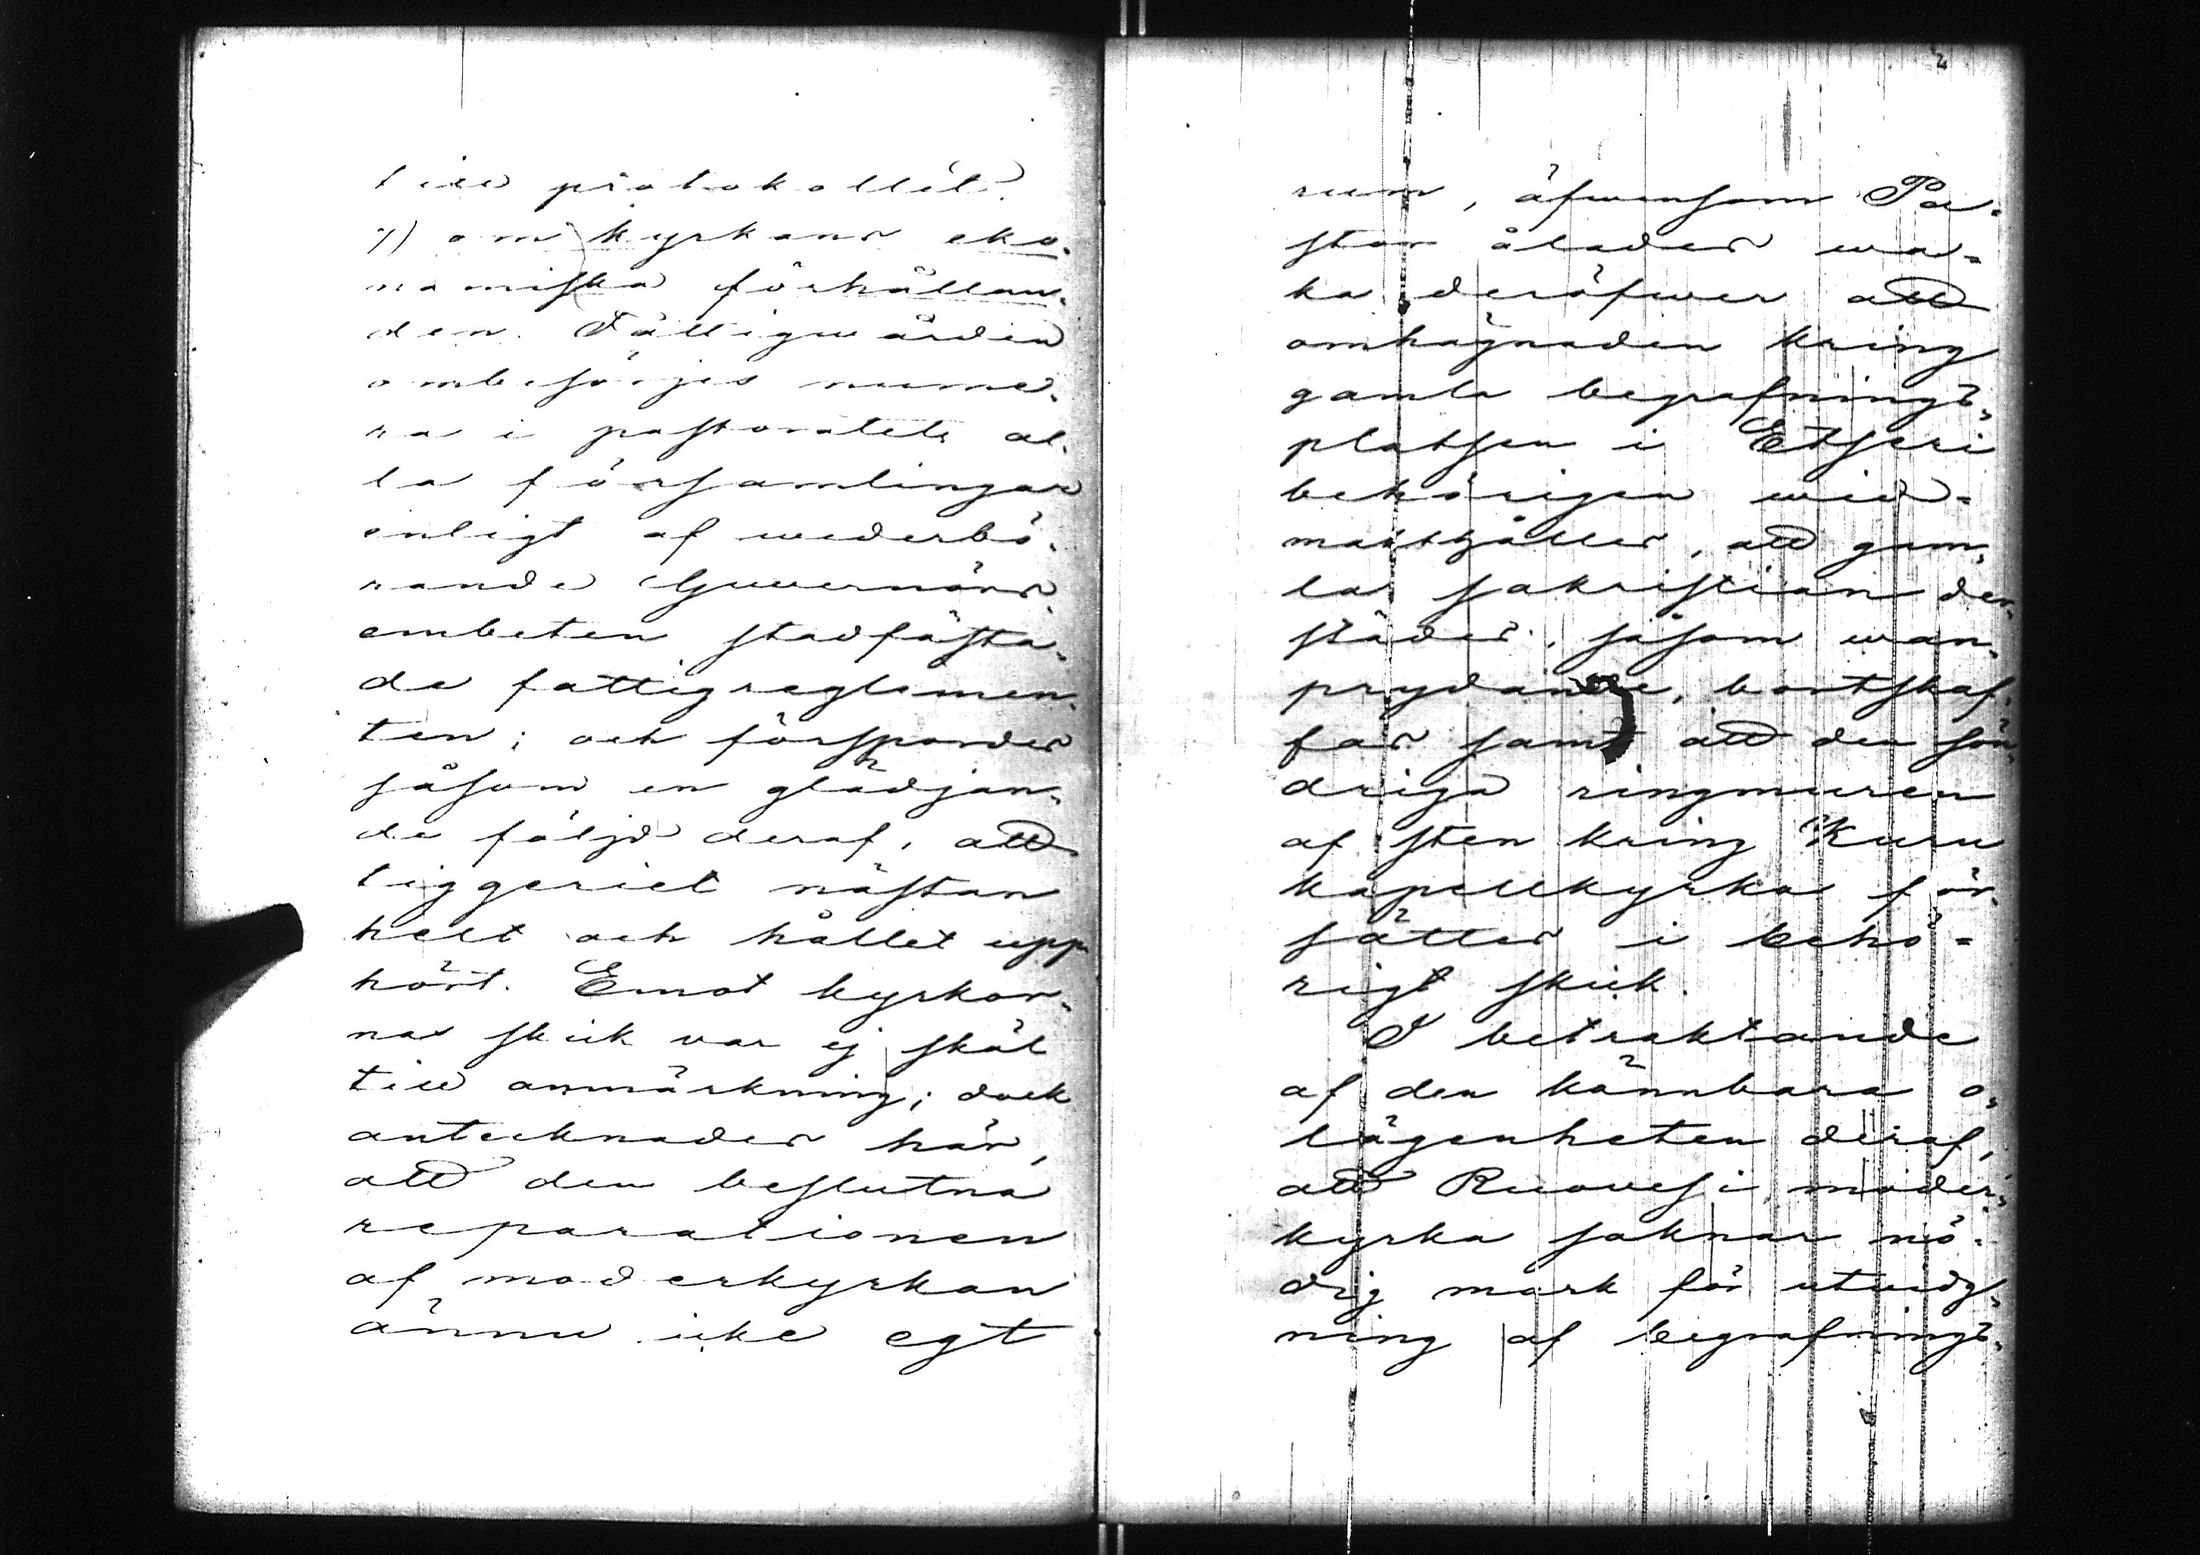 till protokollet.
7) om kyrkans eko-
nomiska förhållan-
den. Fattigwården
ombesörjes nume-
ra i pastoratets al-
la församlingar
enligt af wederbö-
rande Guvernörs
embeten stadfästa-
de fattigreglemen-
ten; och förspordes
såsom en glädjan-
de följd deraf, att
tiggeriet nästan
helt och hållet upp
hört. Emot kyrkor-
nas skick var ej skäl
till anmärkning; dock
antecknades här,
att den beslutna
reparationen
af moderkyrkan
ännu icke egt
rum, äfwensom Pa-
stor ålades wa-
ka deröfwer att
omhägnaden kring
gamla begrafnings-
platsen i Etseri
behörigen wid-
magthålles, att gam-
la sakristian der-
städes, såsom wan-
prydande, bortskaf-
fas samt att den sön-
driga ringmuren
af sten kring Kuru
kapellkyrka för-
sättes i behö-
rigt skick.
I betraktande
af den kännbara o-
lägenheten deraf,
att Ruovesi moder-
kyrka saknar nö-
dig mark för utvidg-
ning af begrafnings-